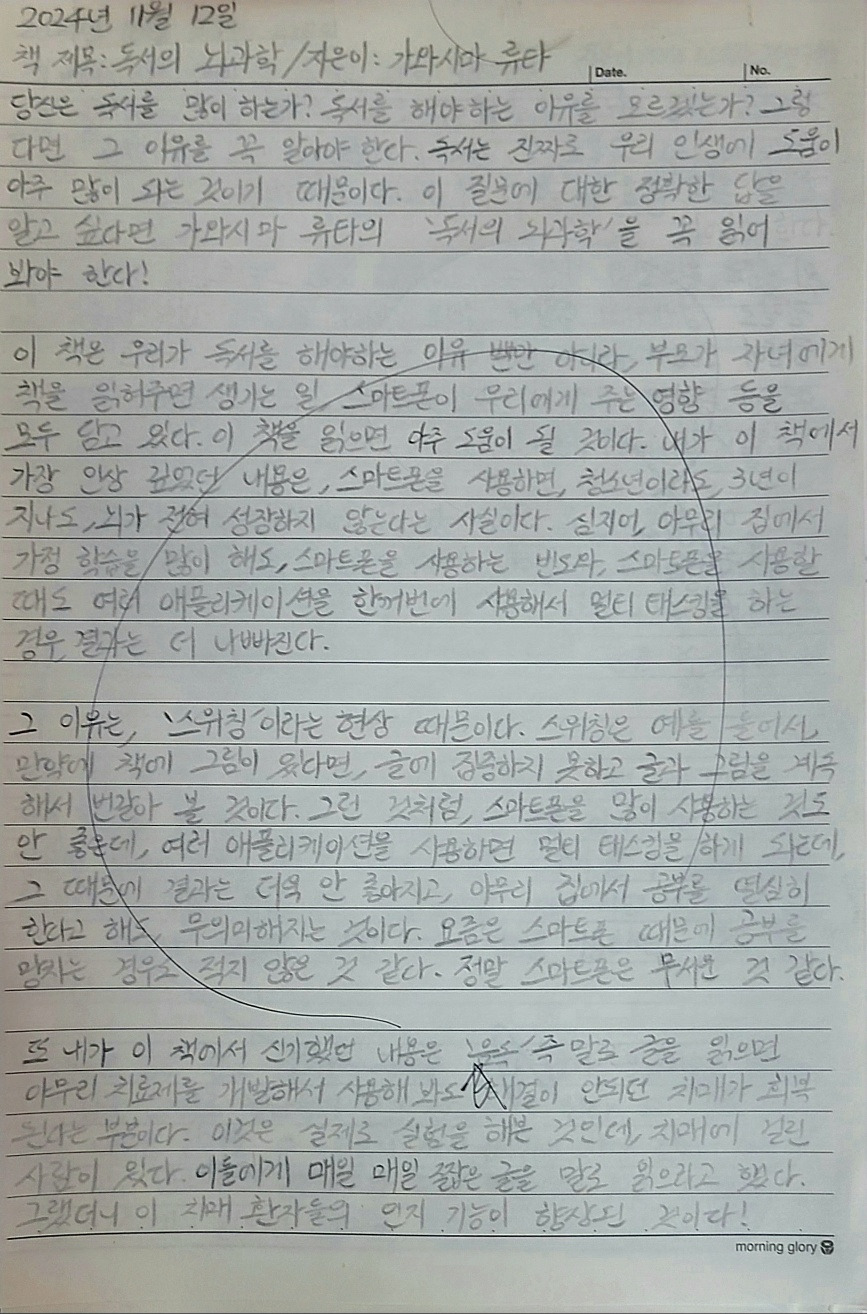 2024년 11월 12일
책 제목: 독서의 뇌과학 / 지은이: 가와시마 류타
Date.
No.
당신은 독서를 많이 하는가? 독서를 해야 하는 이유를 모르겠는가? 그렇
다면 그 이유를 꼭 알아야 한다. 독서는 진짜로 우리 인생에 도움이
아주 많이 되는 것이기 때문이다. 이 질문에 대한 정확한 답을
알고 싶다면 가와시마 류타의 '독서의 뇌과학'을 꼭 읽어
봐야 한다!
이 책은 우리가 독서를 해야하는 이유 뿐만 아니라, 부모가 자녀에게
책을 읽혀주면 생기는 일, 스마트폰이 우리에게 주는 영향 등을
모두 담고 있다. 이 책을 읽으면 아주 도움이 될 것이다. 내가 이 책에서
가장 인상 깊었던 내용은, 스마트폰을 사용하면, 청소년이라도, 3년이
지나도, 뇌가 전혀 성장하지 않는다는 사실이다. 심지어, 아무리 집에서
가정 학습을 많이 해도, 스마트폰을 사용하는 빈도와, 스마트폰을 사용할
때도 여러 애플리케이션을 한꺼번에 사용해서 멀티 태스킹을 하는
경우, 결과는 더 나빠진다.
그 이유는, '스위칭'이라는 현상 때문이다. 스위칭은 예를 들어서,
만약에 책에 그림이 있다면, 글에 집중하지 못하고 글과 그림을 계속
해서 번갈아 볼 것이다. 그런 것처럼, 스마트폰을 많이 사용하는 것도
안 좋은데, 여러 애플리케이션을 사용하면 멀티 태스킹을 하게 되는데,
그 때문에 결과는 더욱 안 좋아지고, 아무리 집에서 공부를 열심히
한다고 해도, 무의미해지는 것이다. 요즘은 스마트폰 때문에 공부를
망치는 경우도 적지 않은 것 같다. 정말 스마트폰은 무서운 것 같다.
또 내가 이 책에서 신기했던 내용은 '음독' 즉 말로 글을 읽으면
아무리 치료제를 개발해서 사용해 봐도 해결이 안되던 치매가 회복
된다는 부분이다. 이것은 실제로 실험을 해본 것인데, 치매에 걸린
사람이 있다. 이들에게 매일 매일 짧은 글을 말로 읽으라고 했다.
그랬더니 이 치매 환자들의 인지 기능이 향상된 것이다!
morning glory